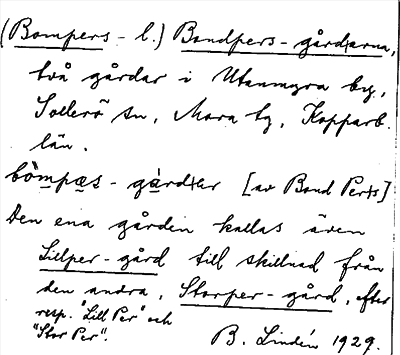 (Bompers- l.) Bondpers-gårdarna,
två gårdar i Utanmyra by,
Sollerö sn, Mora tg, Kopparb.
län.
bò̀mpæs-gàrdær [av Bond Pers]
Den ena gården kallas även
Lillper-gård till skillnad från
den andra, Storper-gård, efter
resp. "Lill Per" och
"Stor Per".
B. Lindén 1929.